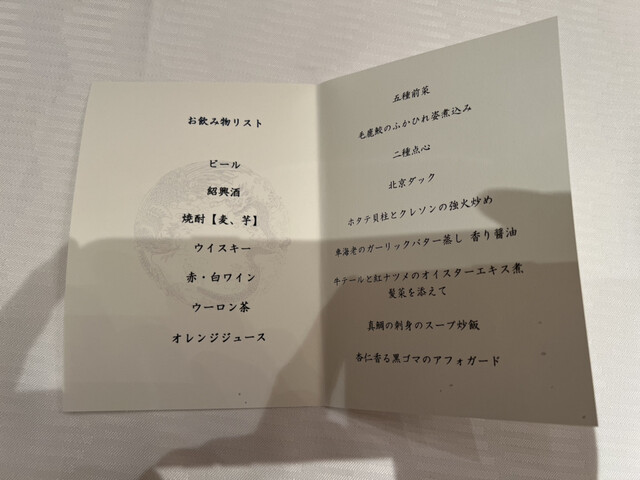 お飲み物リスト
ビール
紹興酒
焼酎【麦、芋】
ウイスキー
赤・白ワイン
ウーロン茶
オレンジジュース
五種前菜
毛鹿鮫のふかひれ姿煮込み
二種点心
北京ダック
ホタテ貝柱とクレソンの強火炒め
車海老のガーリックバター蒸し 香り醤油
牛テールと紅ナツメのオイスターエキス煮
髪菜を添えて
真鯛の刺身のスープ炒飯
杏仁香る黒ゴマのアフォガード